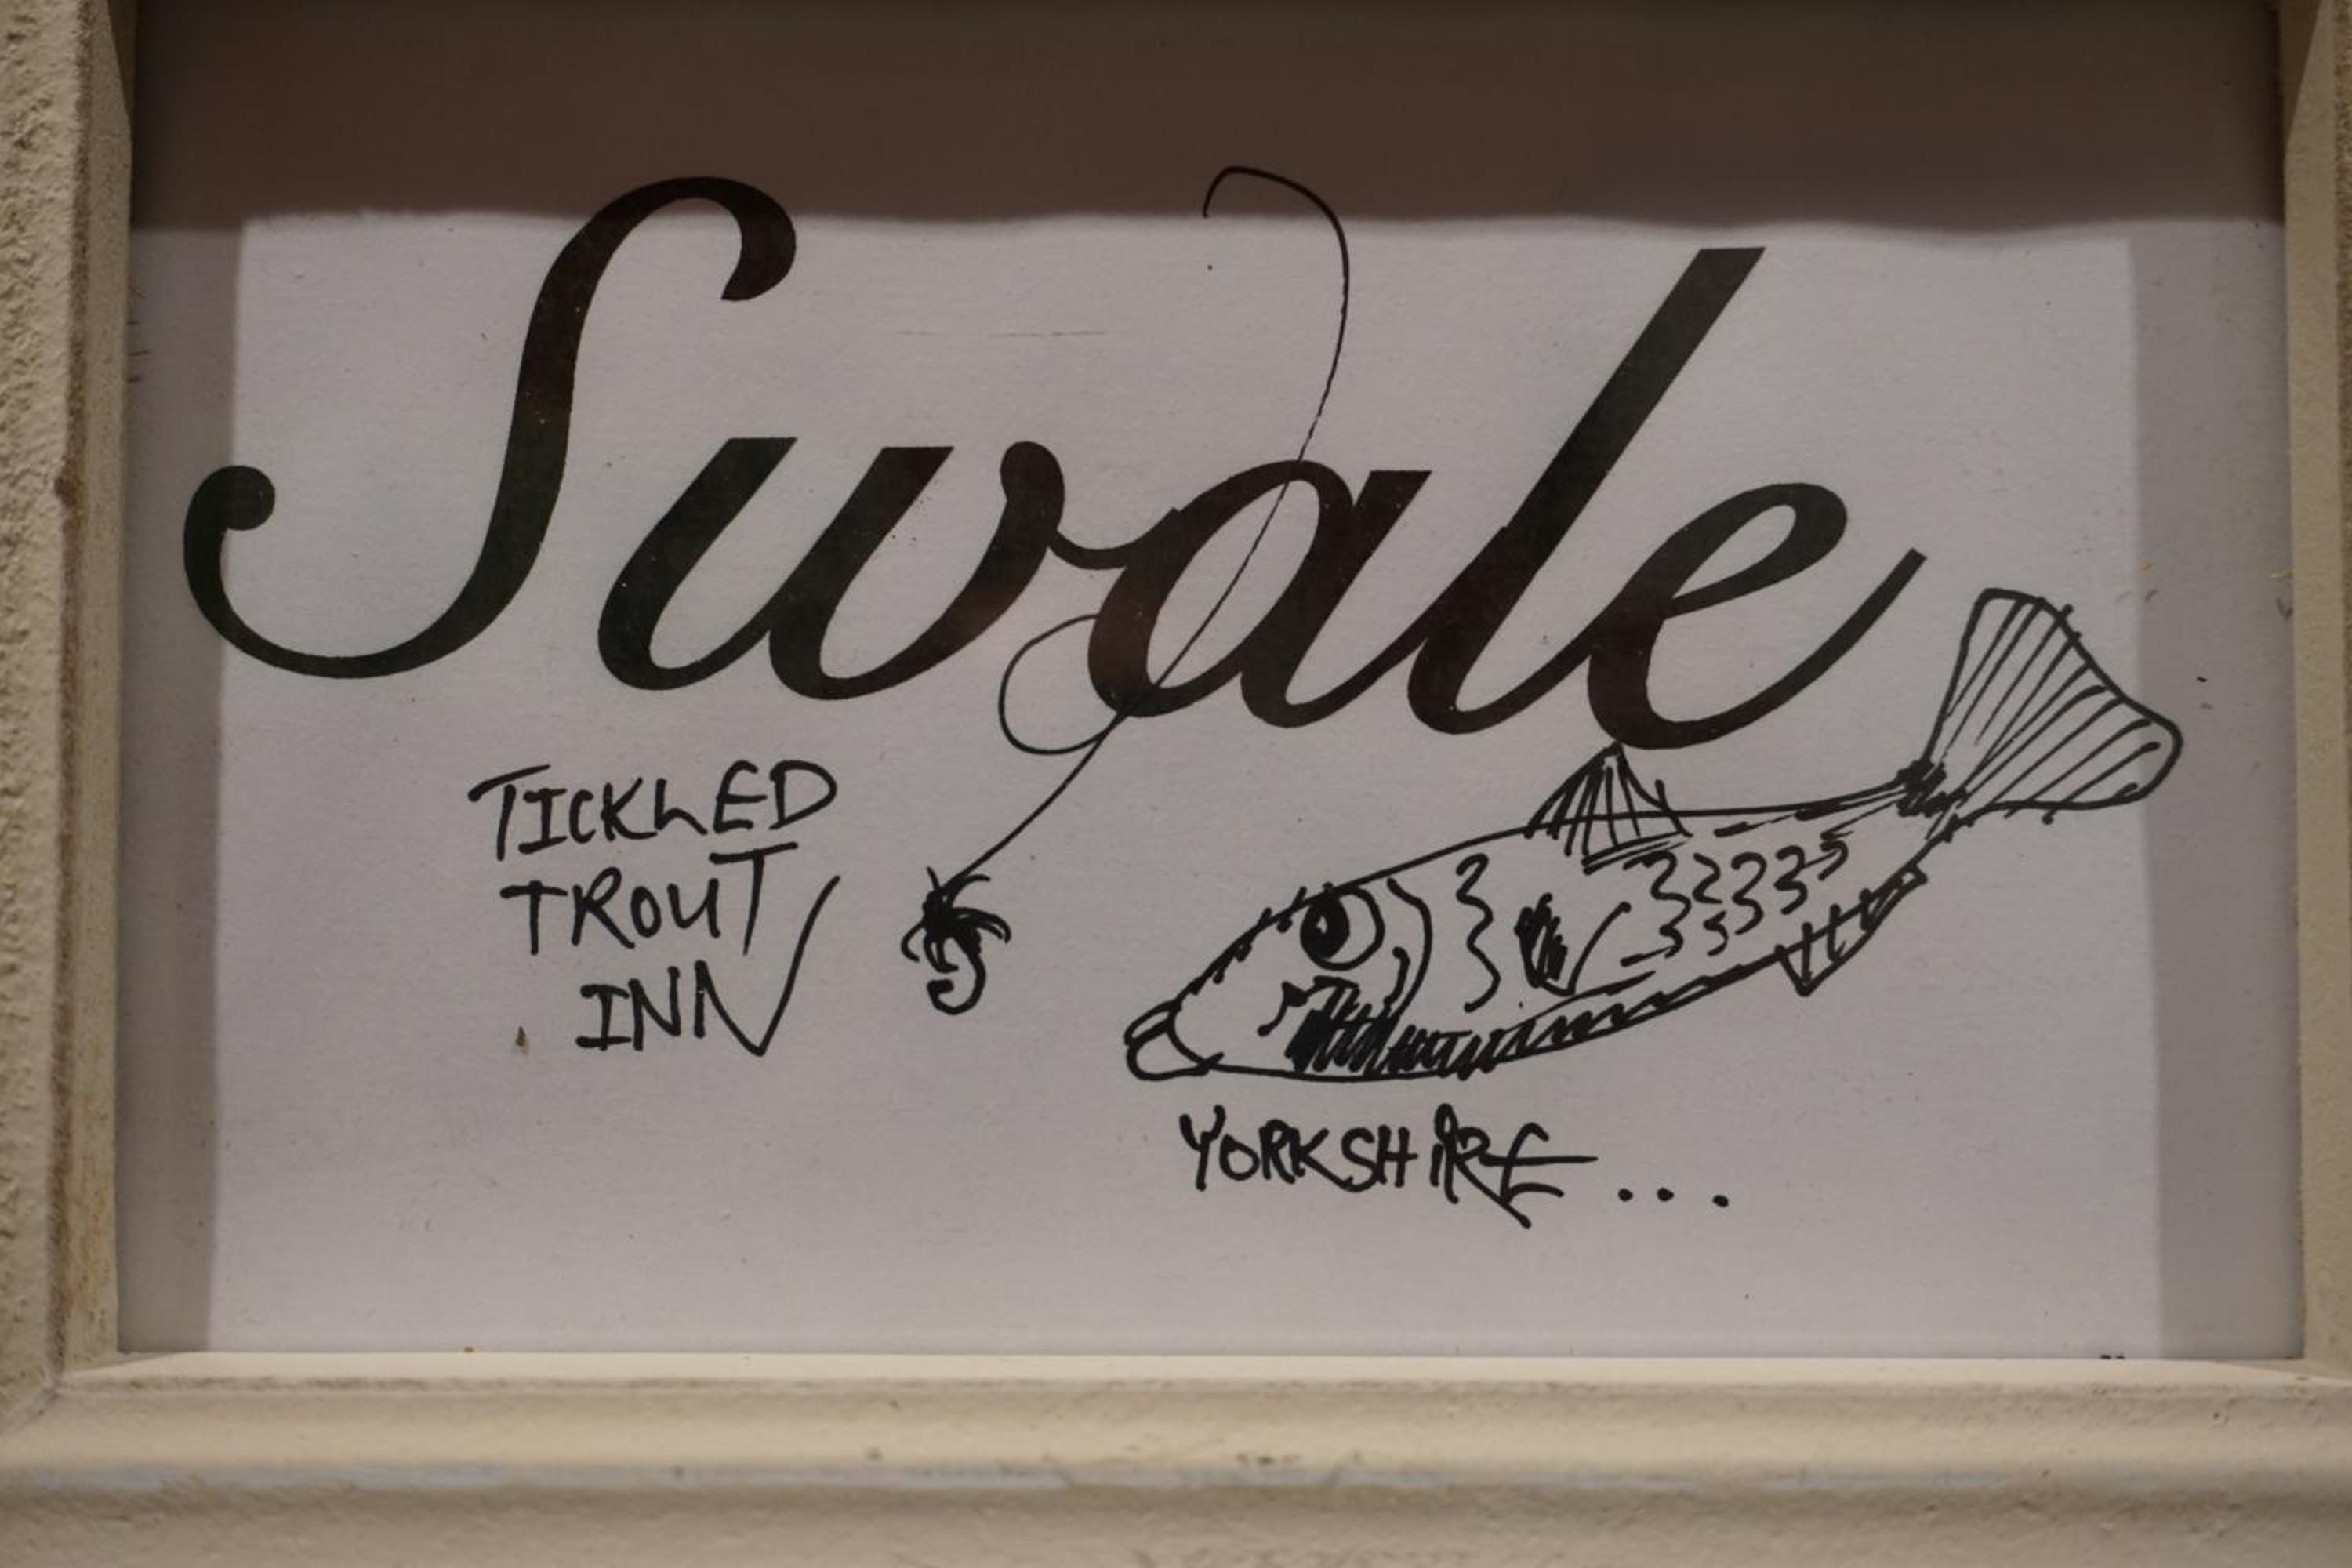 Swale
TICKLED
TROUT
INN
YORKSHIRE...